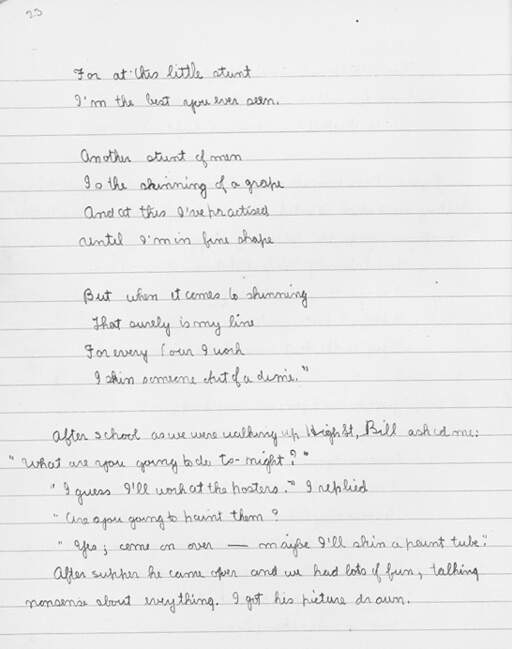 25
For at this little stunt
I'm the best you ever seen.
Another stunt of men
Is the skinning of a grape
And at this I've practised
until I'm in fine shape
But when it comes to skinning
That surely is my line
For every hour I work
I skin someone out of a dime."
After school as we were walking up High St, Bill asked me:
"What are you going to do to-night?"
"I guess I'll work at the posters." I replied
"Are you going to paint them?
"Yes; come on over — maybe I'll skin a paint tube."
After supper he came over and we had lots of fun, talking
nonsense about everything. I got his picture drawn.